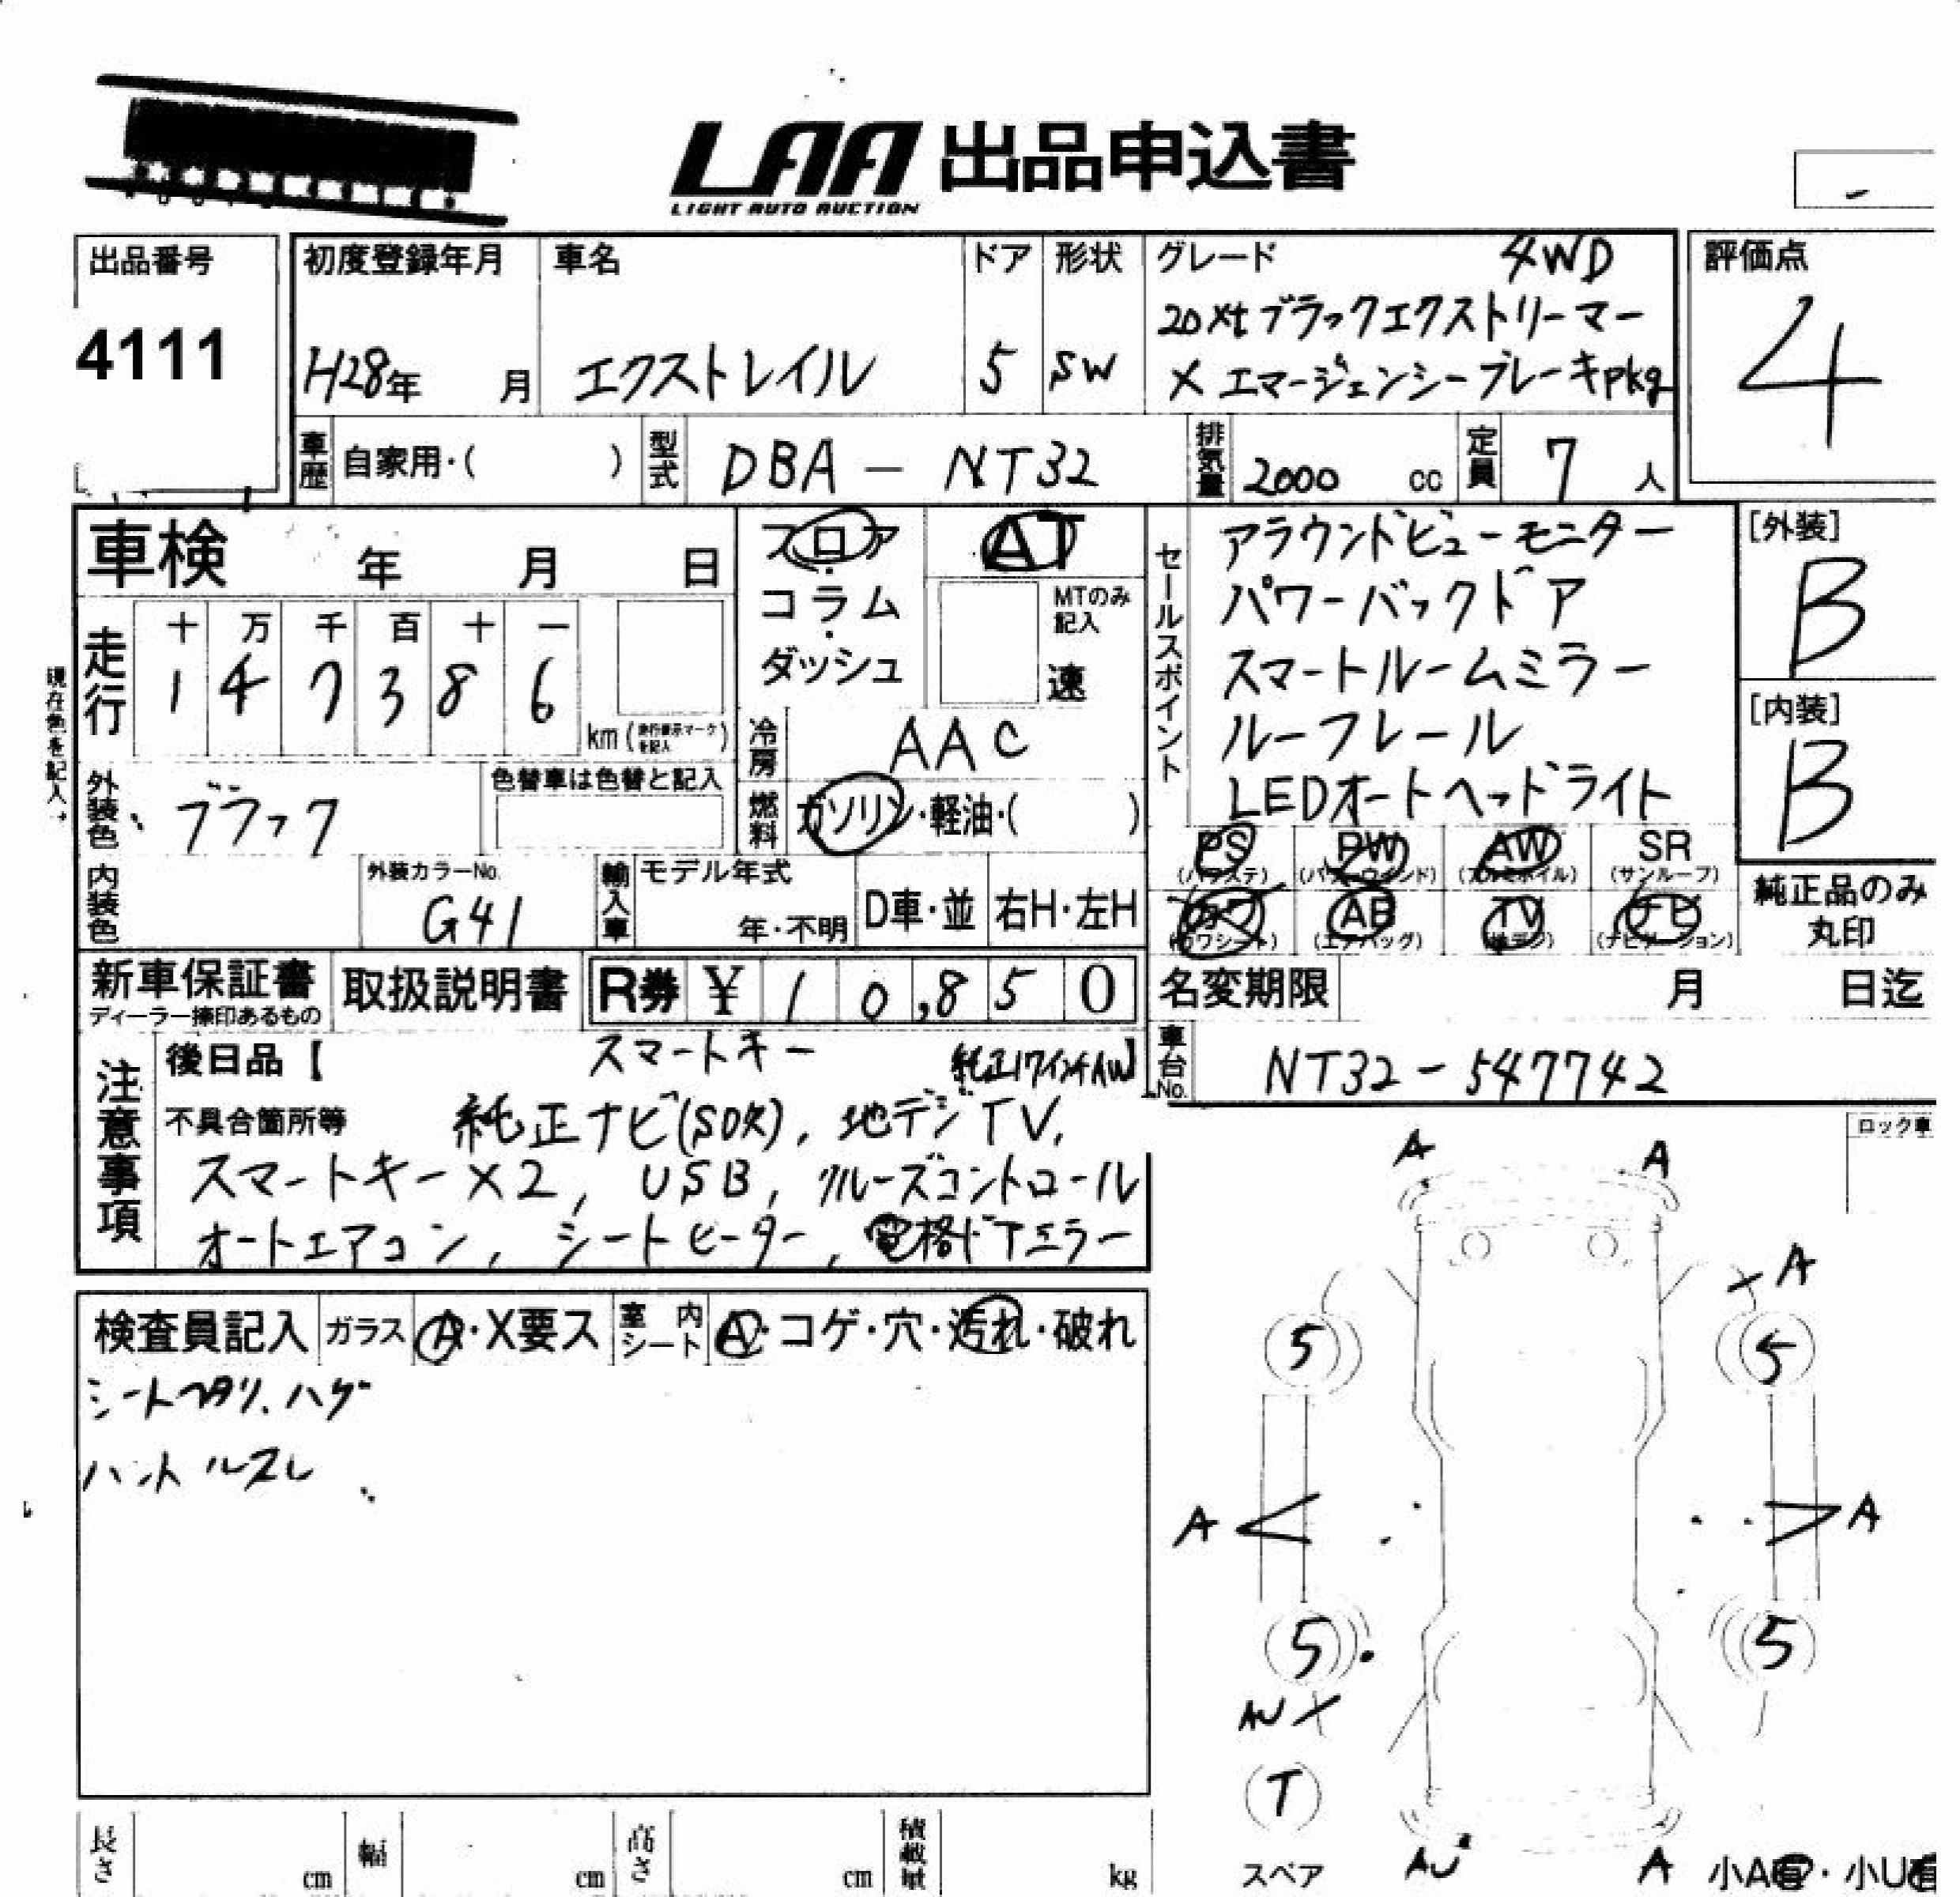 LAA 出品申込書
LIGHT AUTO AUCTION
出品番号
4111
初度登録年月
H28年 月
車名
エクストレイル
ドア
5
形状
SW
グレード 4WD
20Xtブラックエクストリーマー
X エマージェンシーブレーキpkg
評価点
4
車歴 自家用・( )
型式 DBA - NT32
排気量 2000 cc
定員 7 人
車検 年 月 日
フロア
コラム
ダッシュ
AT
MTのみ
記入
速
走行
十 万 千 百 十 一
1 4 7 3 8 6
km (走行表示マークを記入)
現在色を記入→
冷房 AAC
外装色 ブラック
色替車は色替と記入
燃料 ガソリン・軽油・( )
内装色
外装カラーNo.
G41
輸入車
モデル年式
年・不明
D車・並
右H・左H
セールスポイント
アラウンドビューモニター
パワーバックドア
スマートルームミラー
ルーフレール
LEDオートヘッドライト
PS PW AW SR
(パワステ) (パワーウィンド) (アルミホイル) (サンルーフ)
カワ AB TV ナビ
(カワシート) (エアバッグ) (地デジ) (ナビゲーション)
[外装]
B
[内装]
B
純正品のみ
丸印
新車保証書
ディーラー捺印あるもの
取扱説明書
R券 ¥ 1 0,8 5 0
名変期限 月 日迄
車台No. NT32-547742
注意事項
後日品【 スマートキー 純正17インチAW】
不具合箇所等 純正ナビ(SDX), 地デジTV,
スマートキー×2, USB, クルーズコントロール
オートエアコン, シートヒーター, 電格ドアミラー
ロック車
検査員記入
ガラス A・X要ス
室内シート A・コゲ・穴・汚れ・破れ
シートヘタリ、ハゲ
ハンドルスレ
A A
A
5 5
A A
5 5
AU
T
スペア
AU A
小A有・小U有
長さ cm
幅 cm
高さ cm
積載量 kg